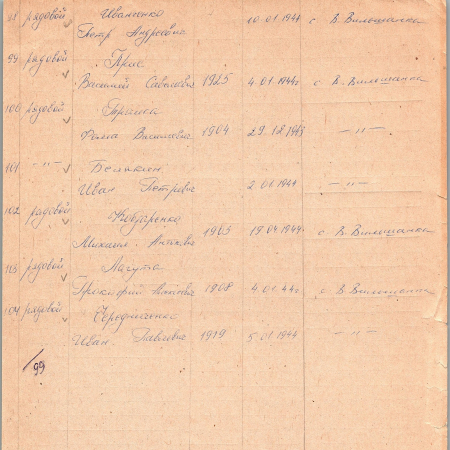 98 рядовой Иваненко 10.01.1944 с В. Вильшанка
Петр Андреевич
99 рядовой
Василий Савельевич 1925 4.01.1944г с В. Вильшанка
100 рядовой
Василевич 1904 29.12.1943 — " —
101 — " —
Иван Петрович 2.01.1944 — " —
102 рядовой
Михаил 1903 19.04.1944г. с В. Вильшанка
103 рядовой Лагута
Прокофий 1908 4.01.44г с В Вильшанка
104 рядовой Чередниченко
Иван Павлович 1919 5.01.1944 — " —
/99